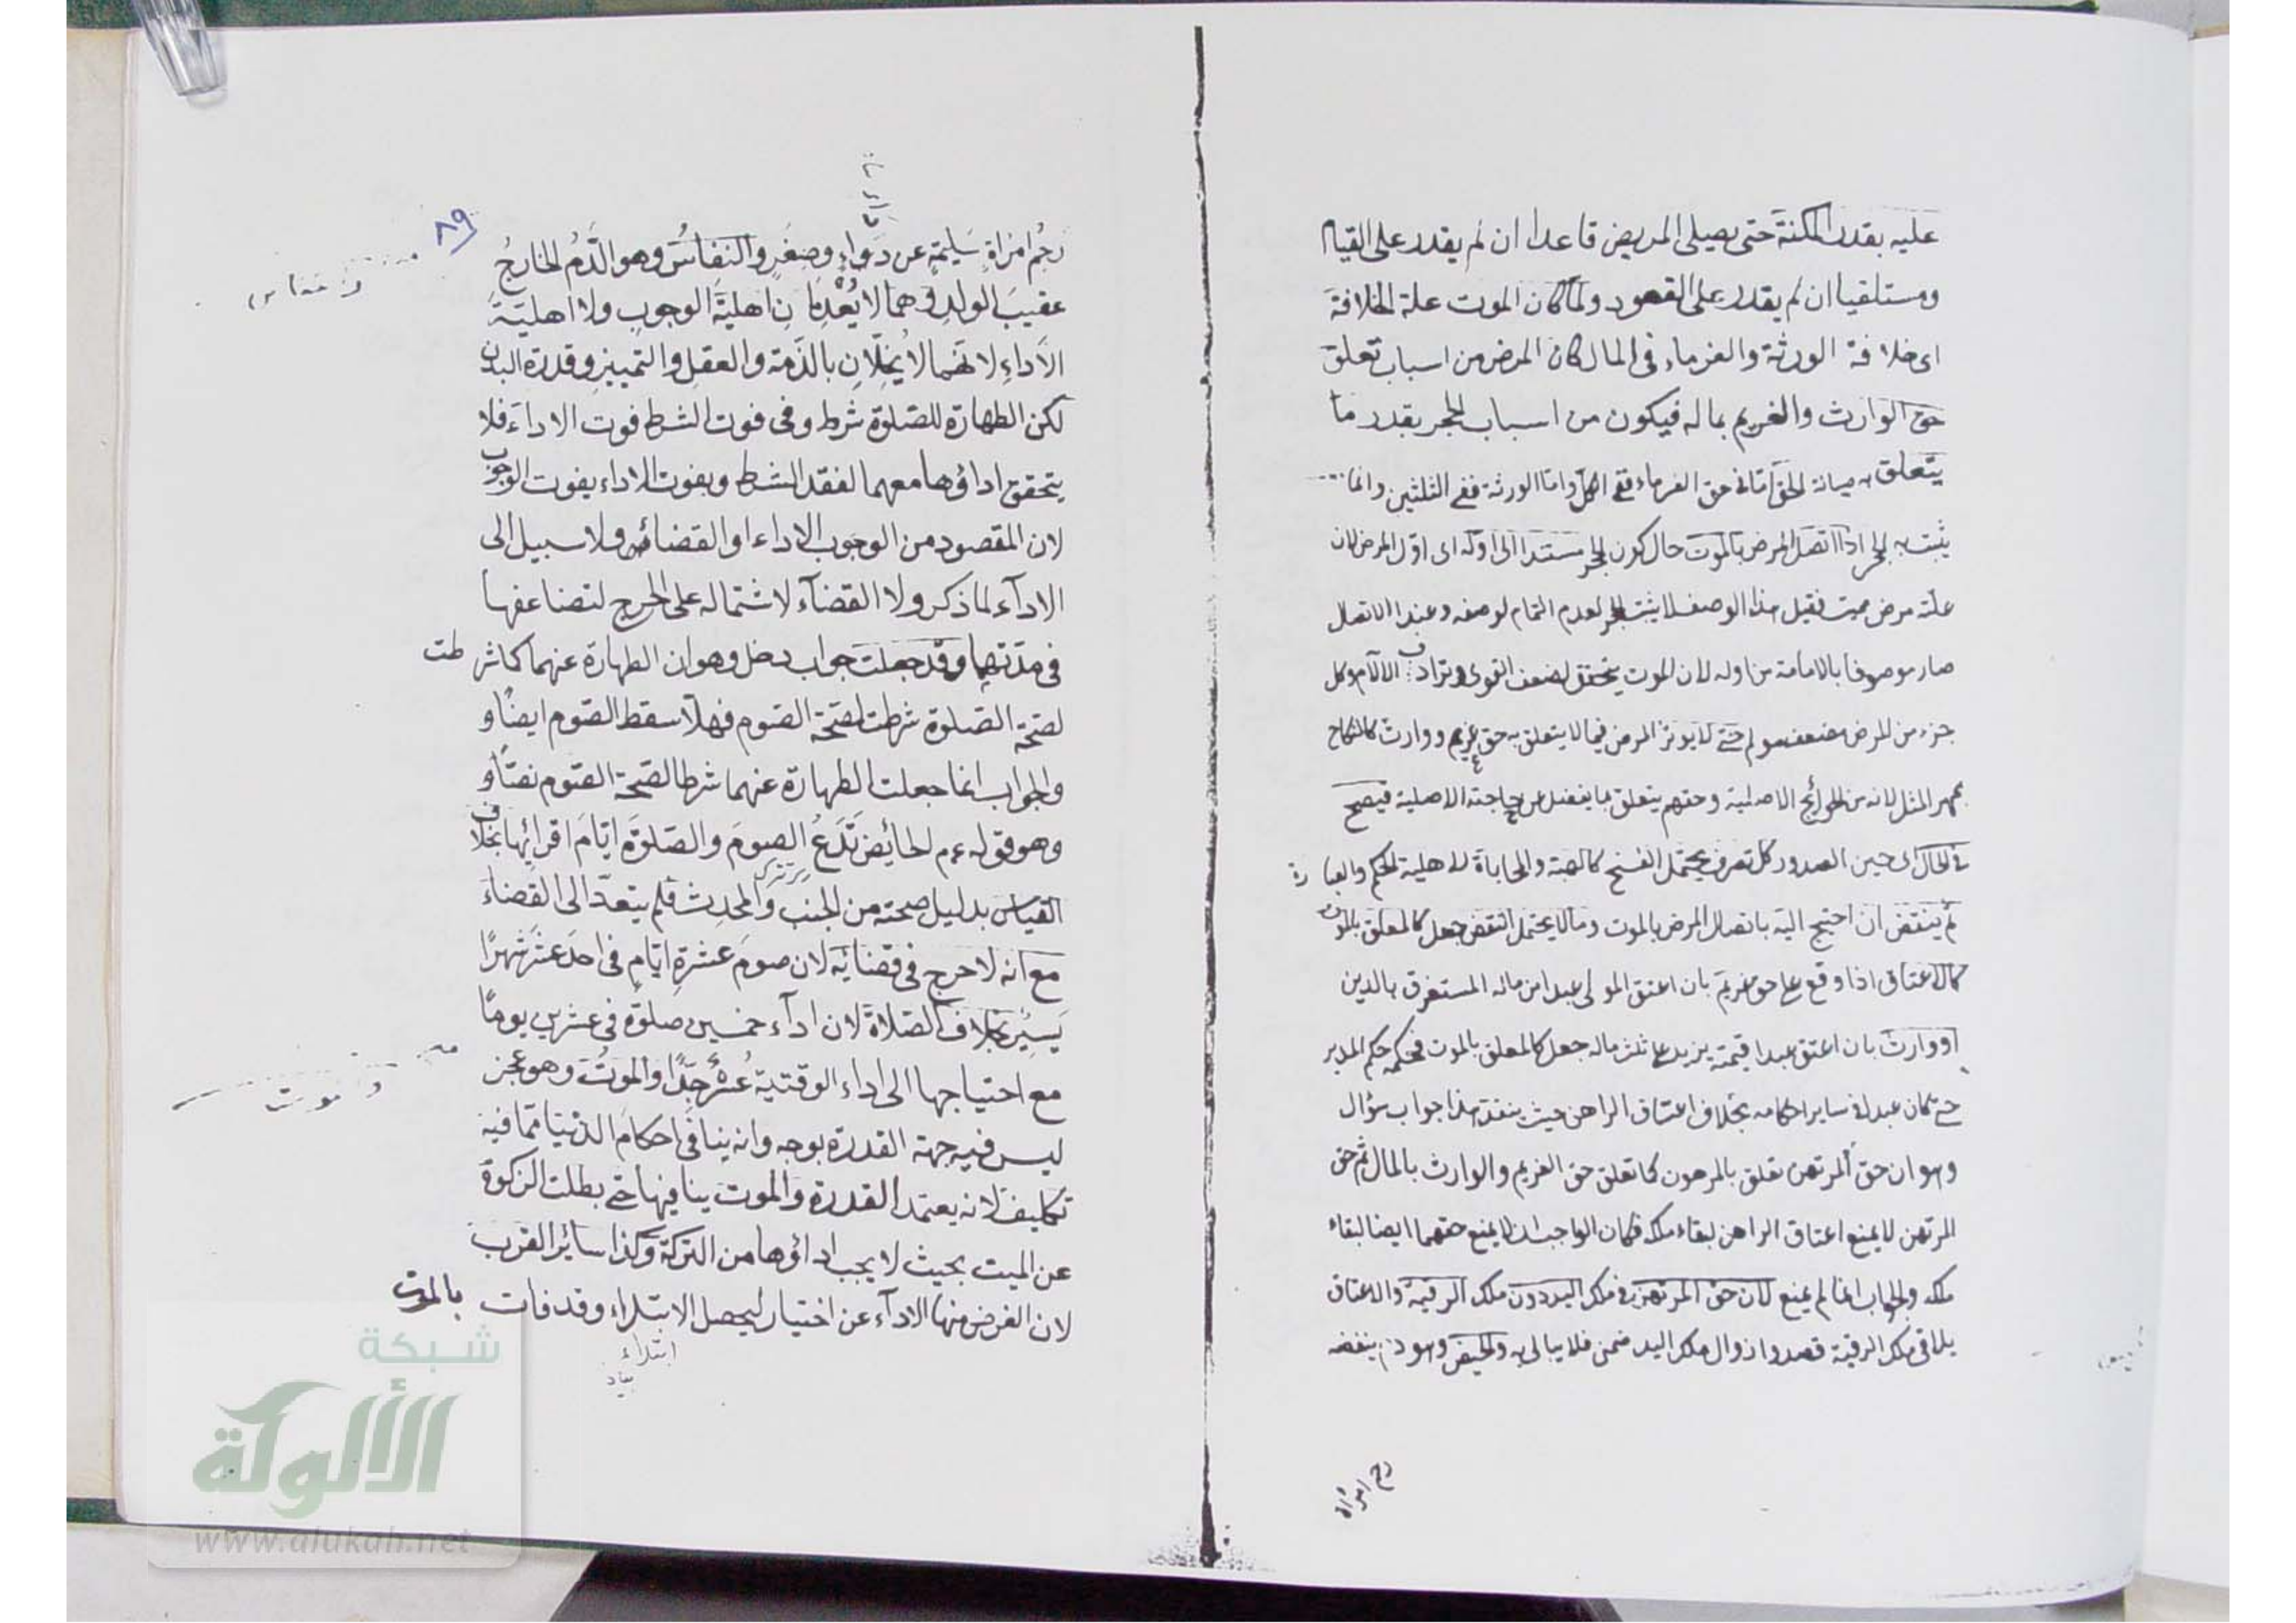 عليه بقدر المكنة حتى يصلى المريض قاعدا ان لم يقدر على القيام
ومستلقيا ان لم يقدر على القعود ولما كان الموت علة الخلافة
اى خلافة الورثة والغرماء فى المال كان المرض من اسباب تعلق
حق الوارث والغريم بماله فيكون من اسباب الحجر بقدر ما
يتعلق به صيانة الحق اما فى حق الغرماء ففى الكل واما الورثة ففى الثلثين وانما
يثبت به الحجر اذا اتصل المرض بالموت حال كون الحجر مستندا الى اوله اى اول المرض لان
علته مرض مميت فقبل هذا الوصف لا يثبت الحجر لعدم التمام لوصفه وعند الاتصال
صار موصوفا بالاماتة من اوله لان الموت يتحقق لضعف القوى وترادف الالام وكل
جزء من المرض مضعف مولم حتى لا يوثر المرض فيما لا يتعلق به حق غريم ووارث كالنكاح
بمهر المثل لانه من الحوائج الاصلية وحقهم يتعلق بما يفضل عن حاجته الاصلية فيصح
فى الحال اى حين الصدور كل تصرف يحتمل الفسخ كالهبة والمحاباة للاهلية الحكم والعبارة
ثم ينتقض ان احتيج اليه باتصال المرض بالموت وما لا يحتمل النقض جعل كالمعلق بالموت
كالاعتاق اذا وقع على حق غريم بان اعتق المولى عبدا من ماله المستغرق بالدين
او وارث بان اعتق عبدا قيمته يزيد على ثلث ماله جعل كالمعلق بالموت فحكمه حكم المدبر
حتى كان عبدا فى ساير احكامه بخلاف اعتاق الراهن حيث ينفذ هذا جواب سؤال
وهو ان حق المرتهن تعلق بالمرهون كما تعلق حق الغريم والوارث بالمال ثم حق
المرتهن لا يمنع اعتاق الراهن لبقاء ملكه فكان الواجب ان لا يمنع حقهما ايضا لبقاء
ملكه والجواب انما لم يمنع لان حق المرتهن فى ملك اليد دون ملك الرقبة والاعتاق
يلاقى ملك الرقبة قصدا وزوال ملك اليد ضمن فلا يبالى به والحيض وهو دم ينفضه
رحم امراة
٨٩
رحم امراة سليمة عن دواء وصغر والنفاس وهو الدم الخارج
عقيب الولد وهما لا يعدمان اهلية الوجوب ولا اهلية
الاداء لانهما لا يخلان بالذمة والعقل والتمييز وقدرة البدن
لكن الطهارة للصلوة شرط وفى فوت الشرط فوت الاداء فلا
يتحقق اداؤها معهما لفقد الشرط وبفوت الاداء يفوت الوجوب
لان المقصود من الوجوب الاداء او القضاء ولا سبيل الى
الادآء لما ذكر ولا القضآء لاشتماله على الحرج لتضاعفها
فى مدتهما وقد جعلت جواب دخل وهو ان الطهارة عنهما كما شرطت
لصحة الصلوة شرطت لصحة الصوم فهلا سقط الصوم ايضا و
والجواب انما جعلت الطهارة عنهما شرطا لصحة الصوم نصا و
وهو قوله عم الحائض تدع الصوم والصلوة ايام اقرائها بخلاف
القياس بدليل صحته من الجنب والمحدث فلم يتعد الى القضاء
مع انه لا حرج فى قضائه لان صوم عشرة ايام فى احد عشر شهرا
يسير بخلاف الصلاة لان ادآء خمسين صلوة فى عشرين يوما
مع احتياجها الى اداء الوقتية عسر جدا والموت وهو عجز
ليس فيه جهة القدرة بوجه وانه ينافى احكام الدنيا مما فيه
تكليف لانه يعتمد القدرة والموت ينافيها حتى بطلت الزكوة
عن الميت بحيث لا يجب اداؤها من التركة وكذا سائر القرب
لان الغرض منها الادآء عن اختيار ليحصل الابتلاء وقد فات بالموت
ابتلاء
و نفاس
و موت
شبكة
الألوكة
www.alukah.net